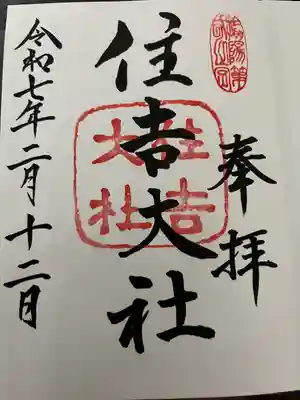 奉拝
住吉大社
住吉大社
令和七年二月十二日